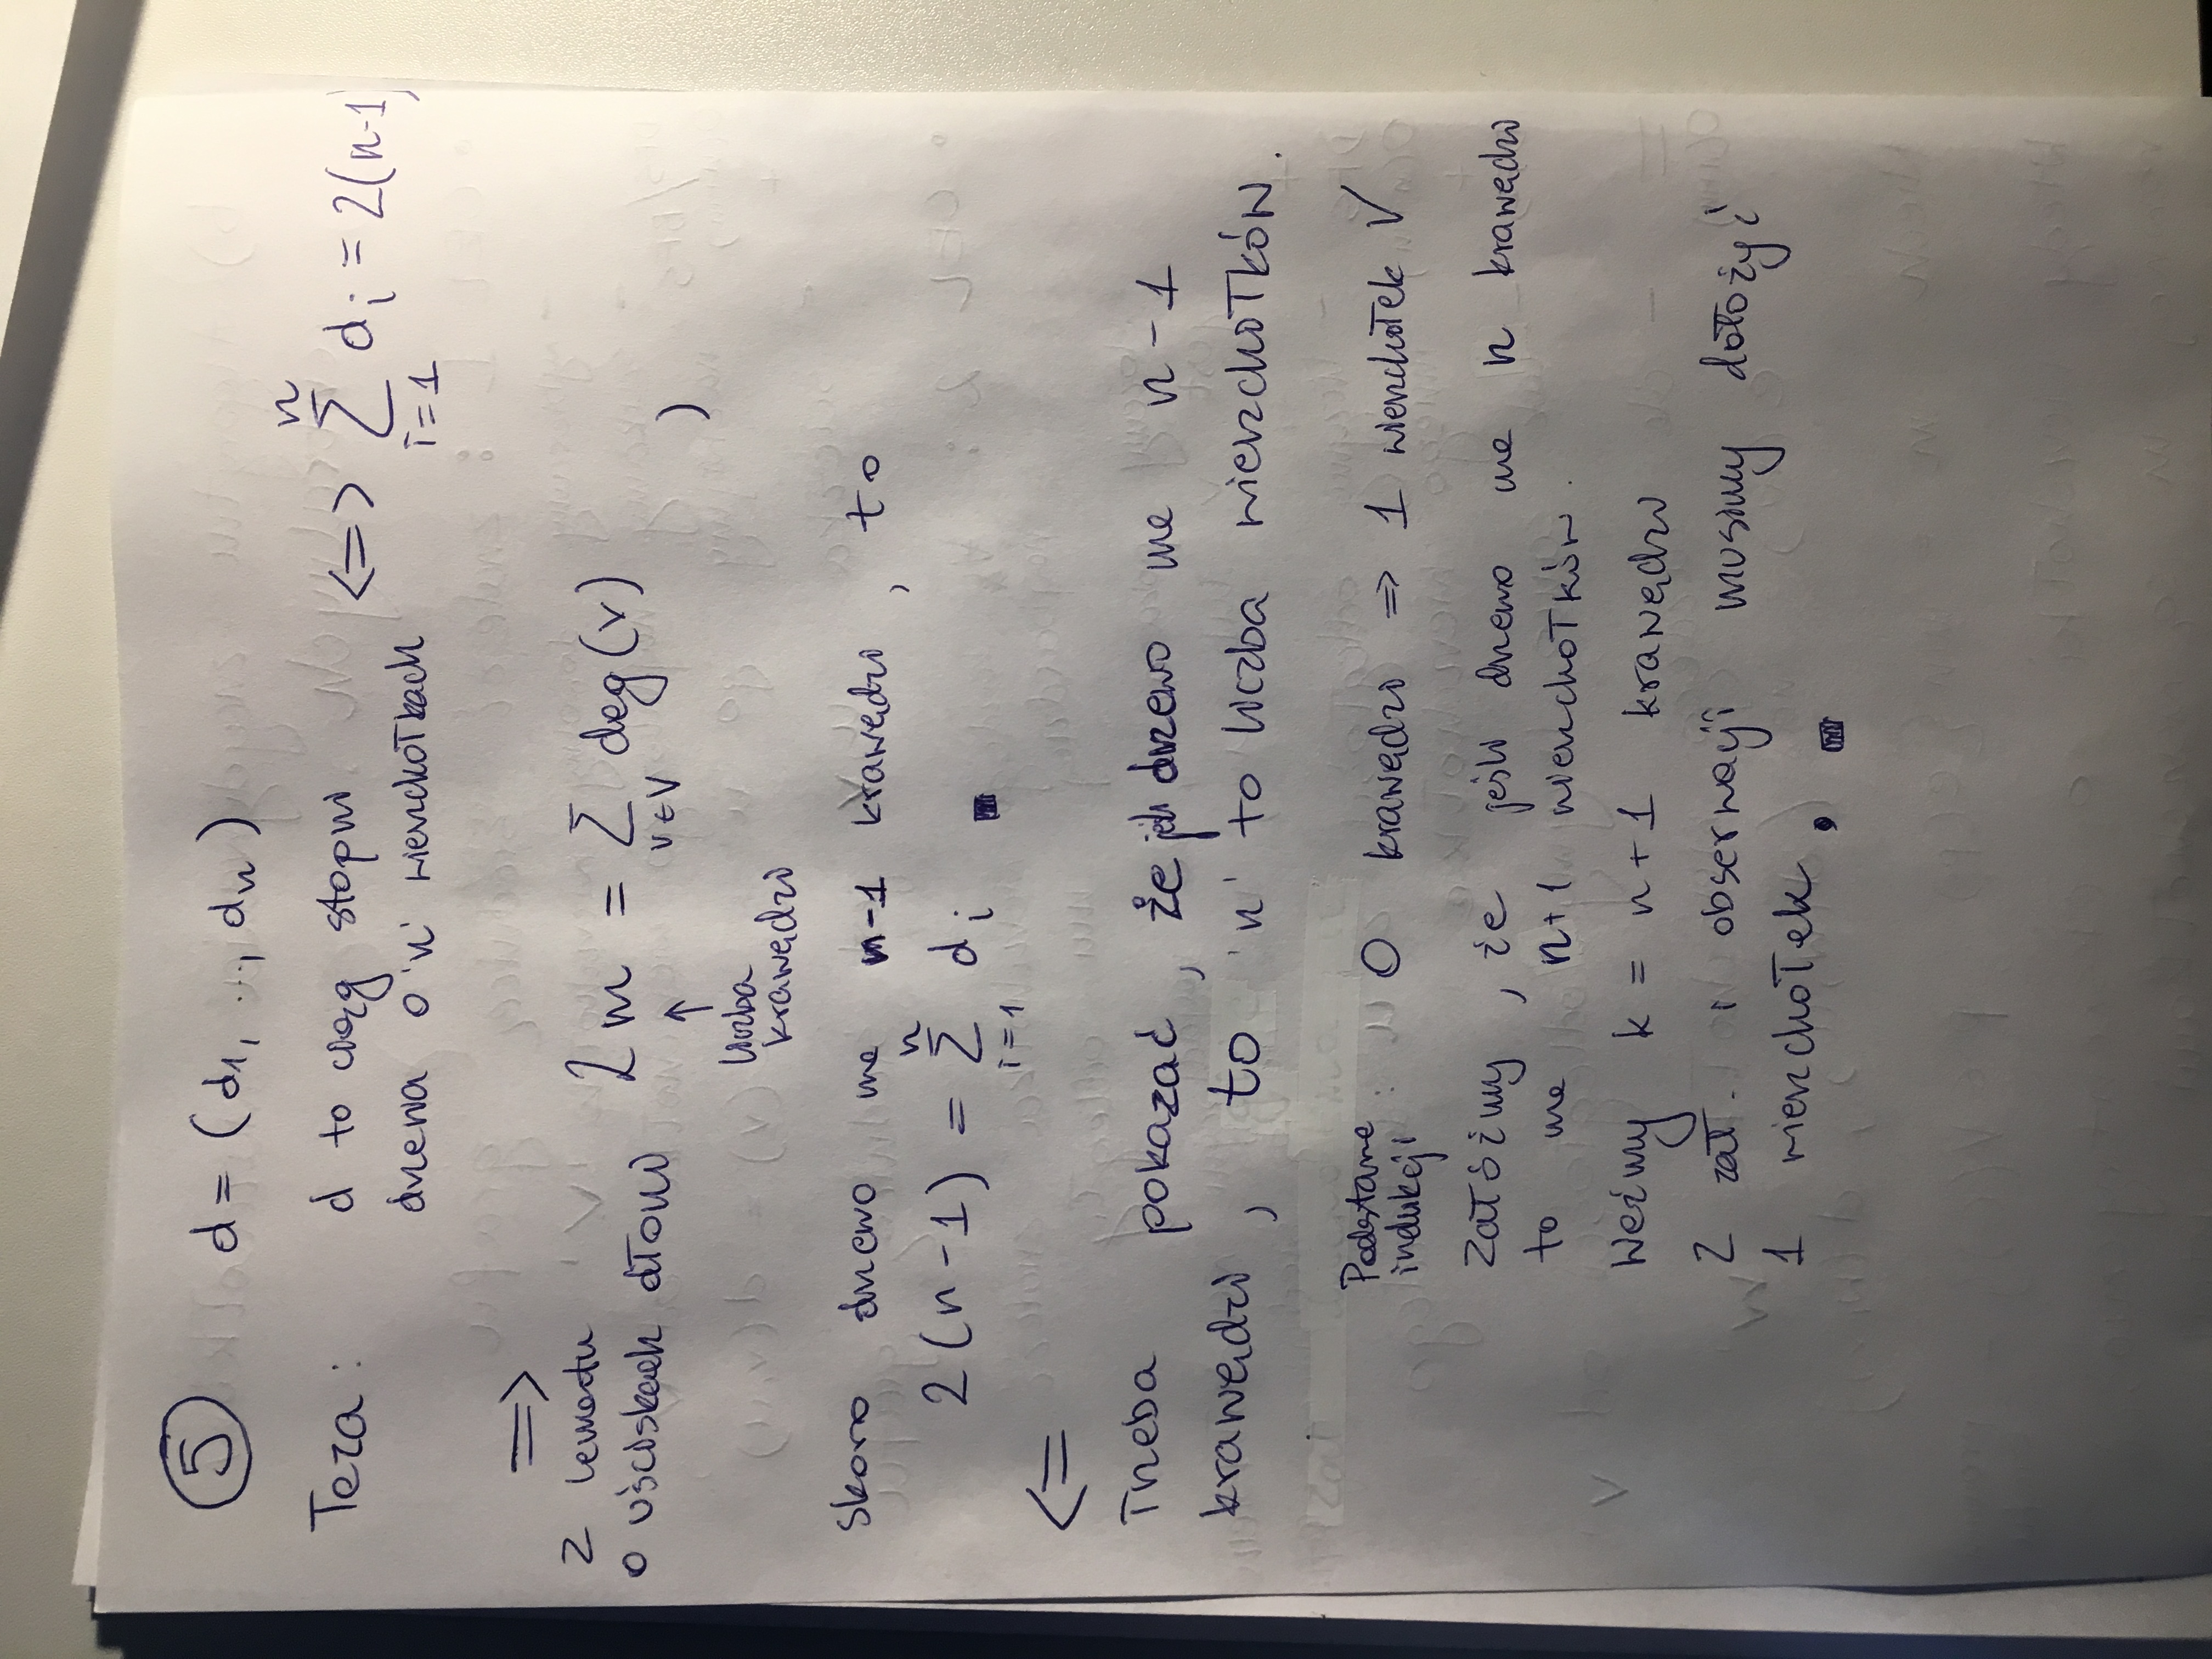 5 d = (d1, ..., dn)
Teza: d to ciąg stopni <=> n∑i=1 di = 2(n-1)
drzewa o 'n' wierzchołkach
=>
Z lematu
o uściskach dłoni 2m = ∑v∈V deg(v) )
↑
liczba
krawędzi
Skoro drzewo ma n-1 krawędzi, to
2(n-1) = n∑i=1 di ■
<=
Trzeba pokazać, że jeśli drzewo ma n-1
krawędzi, to 'n' to liczba wierzchołków.
Podstawa
indukcji: 0 krawędzi => 1 wierzchołek √
Załóżmy, że jeśli drzewo ma n krawędzi
to ma n+1 wierzchołków.
Weźmy k = n+1 krawędzi
Z zał. i obserwacji musimy dołożyć
1 wierzchołek. ■